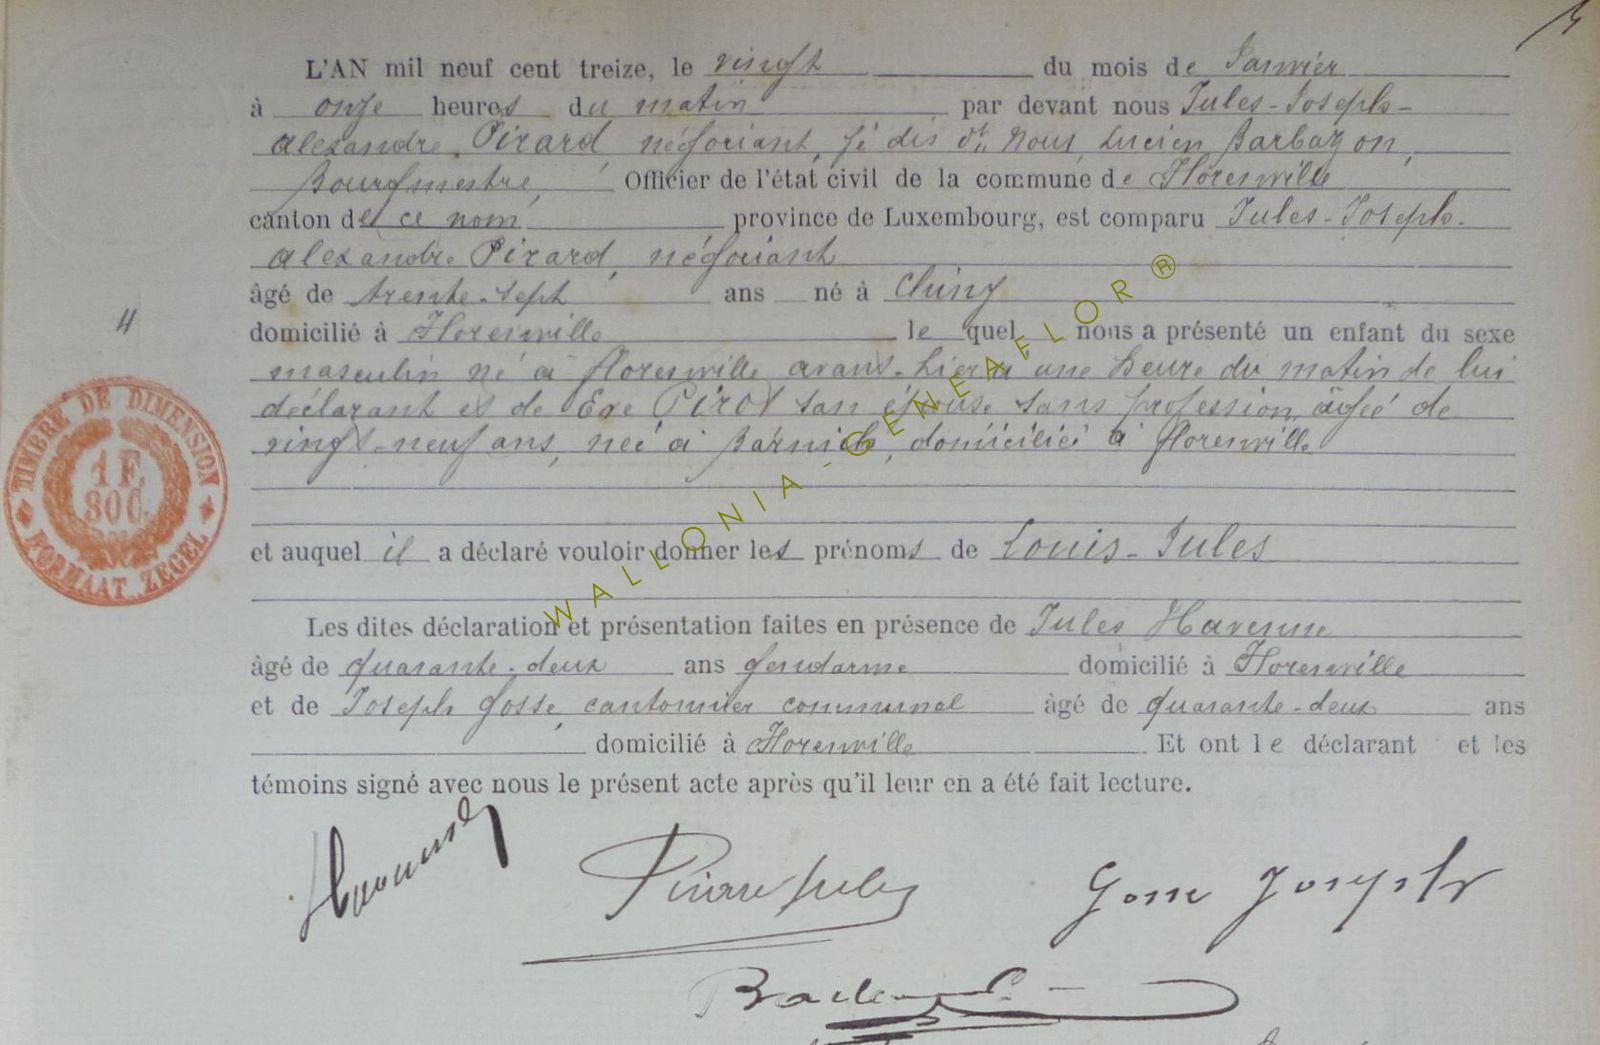 L'AN mil neuf cent treize, le vingt du mois de Janvier
à onze heures du matin par devant nous Jules-Joseph-
Alexandre Pirard, négociant, je dis dt Nous, Lucien Barbazon,
Bourgmestre, Officier de l'état civil de la commune de Florenville
canton de ce nom, province de Luxembourg, est comparu Jules-Joseph-
Alexandre Pirard, négociant
âgé de trente-sept ans né à Chiny
4
domicilié à Florenville le quel nous a présenté un enfant du sexe
masculin né à Florenville avant-hier à une heure du matin de lui
déclarant et de Eve Pirot son épouse sans profession, âgée de
vingt-neuf ans, née à Barnich, domiciliée à Florenville
TIMBRE DE DIMENSION
1 F.
80 C.
FORMAAT ZEGEL
et auquel il a déclaré vouloir donner les prénoms de Louis-Jules
Les dites déclaration et présentation faites en présence de Jules Havenne
âgé de quarante-deux ans gendarme domicilié à Florenville
et de Joseph Gosse, cantonnier communal âgé de quarante-deux ans
domicilié à Florenville Et ont le déclarant et les
témoins signé avec nous le présent acte après qu'il leur en a été fait lecture.
Gosse Joseph
WALLONIA-GENEAFLOR®